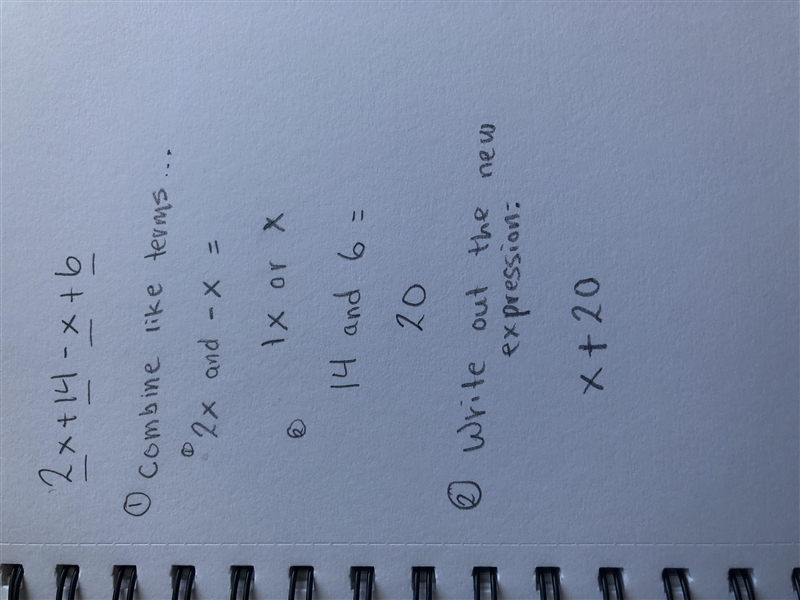 2x+14-x+6
① Combine like terms...
① 2x and -x =
1x or x
②
14 and 6 =
20
② Write out the new
expression:
x+20